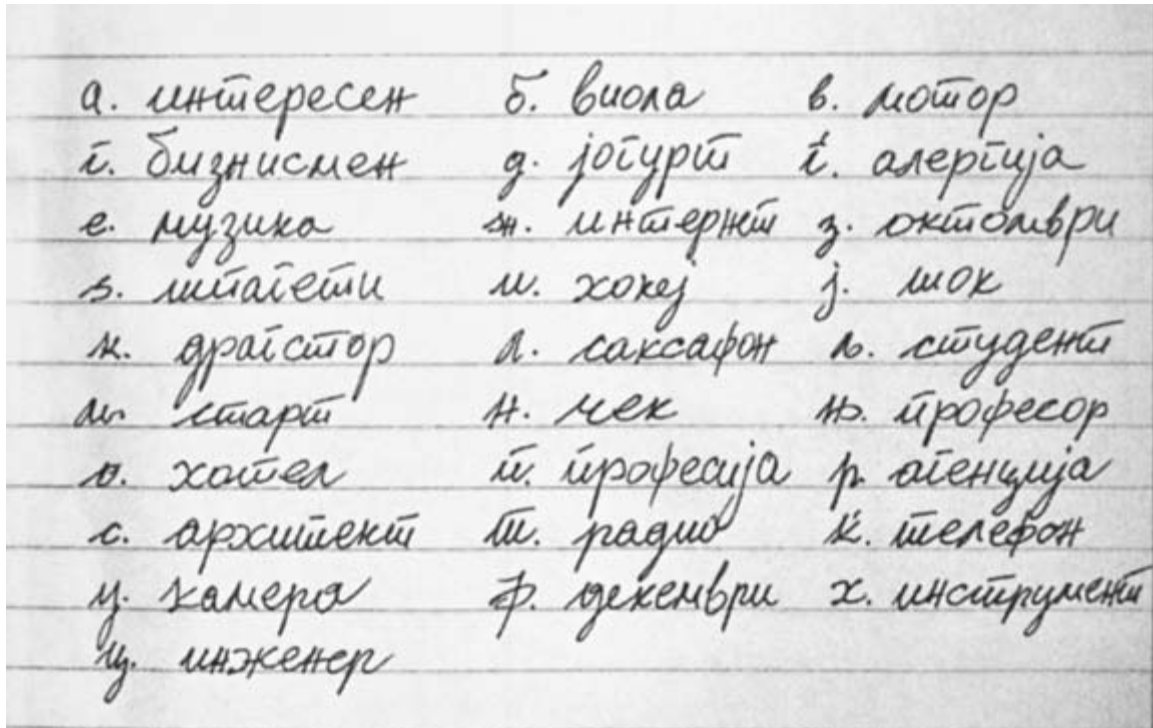 а. интересен б. виола в. мотор
г. бизнисмен д. јогурт ѓ. алергија
е. музика ж. интернт з. октомври
ѕ. шпагети и. хокеј ј. шок
к. драгстор л. саксафон љ. студент
м. старт н. чек њ. професор
о. хотел п. професија р. агенција
с. архитект т. радио ќ. телефон
у. камера ф. декември х. инструмент
ц. инженер